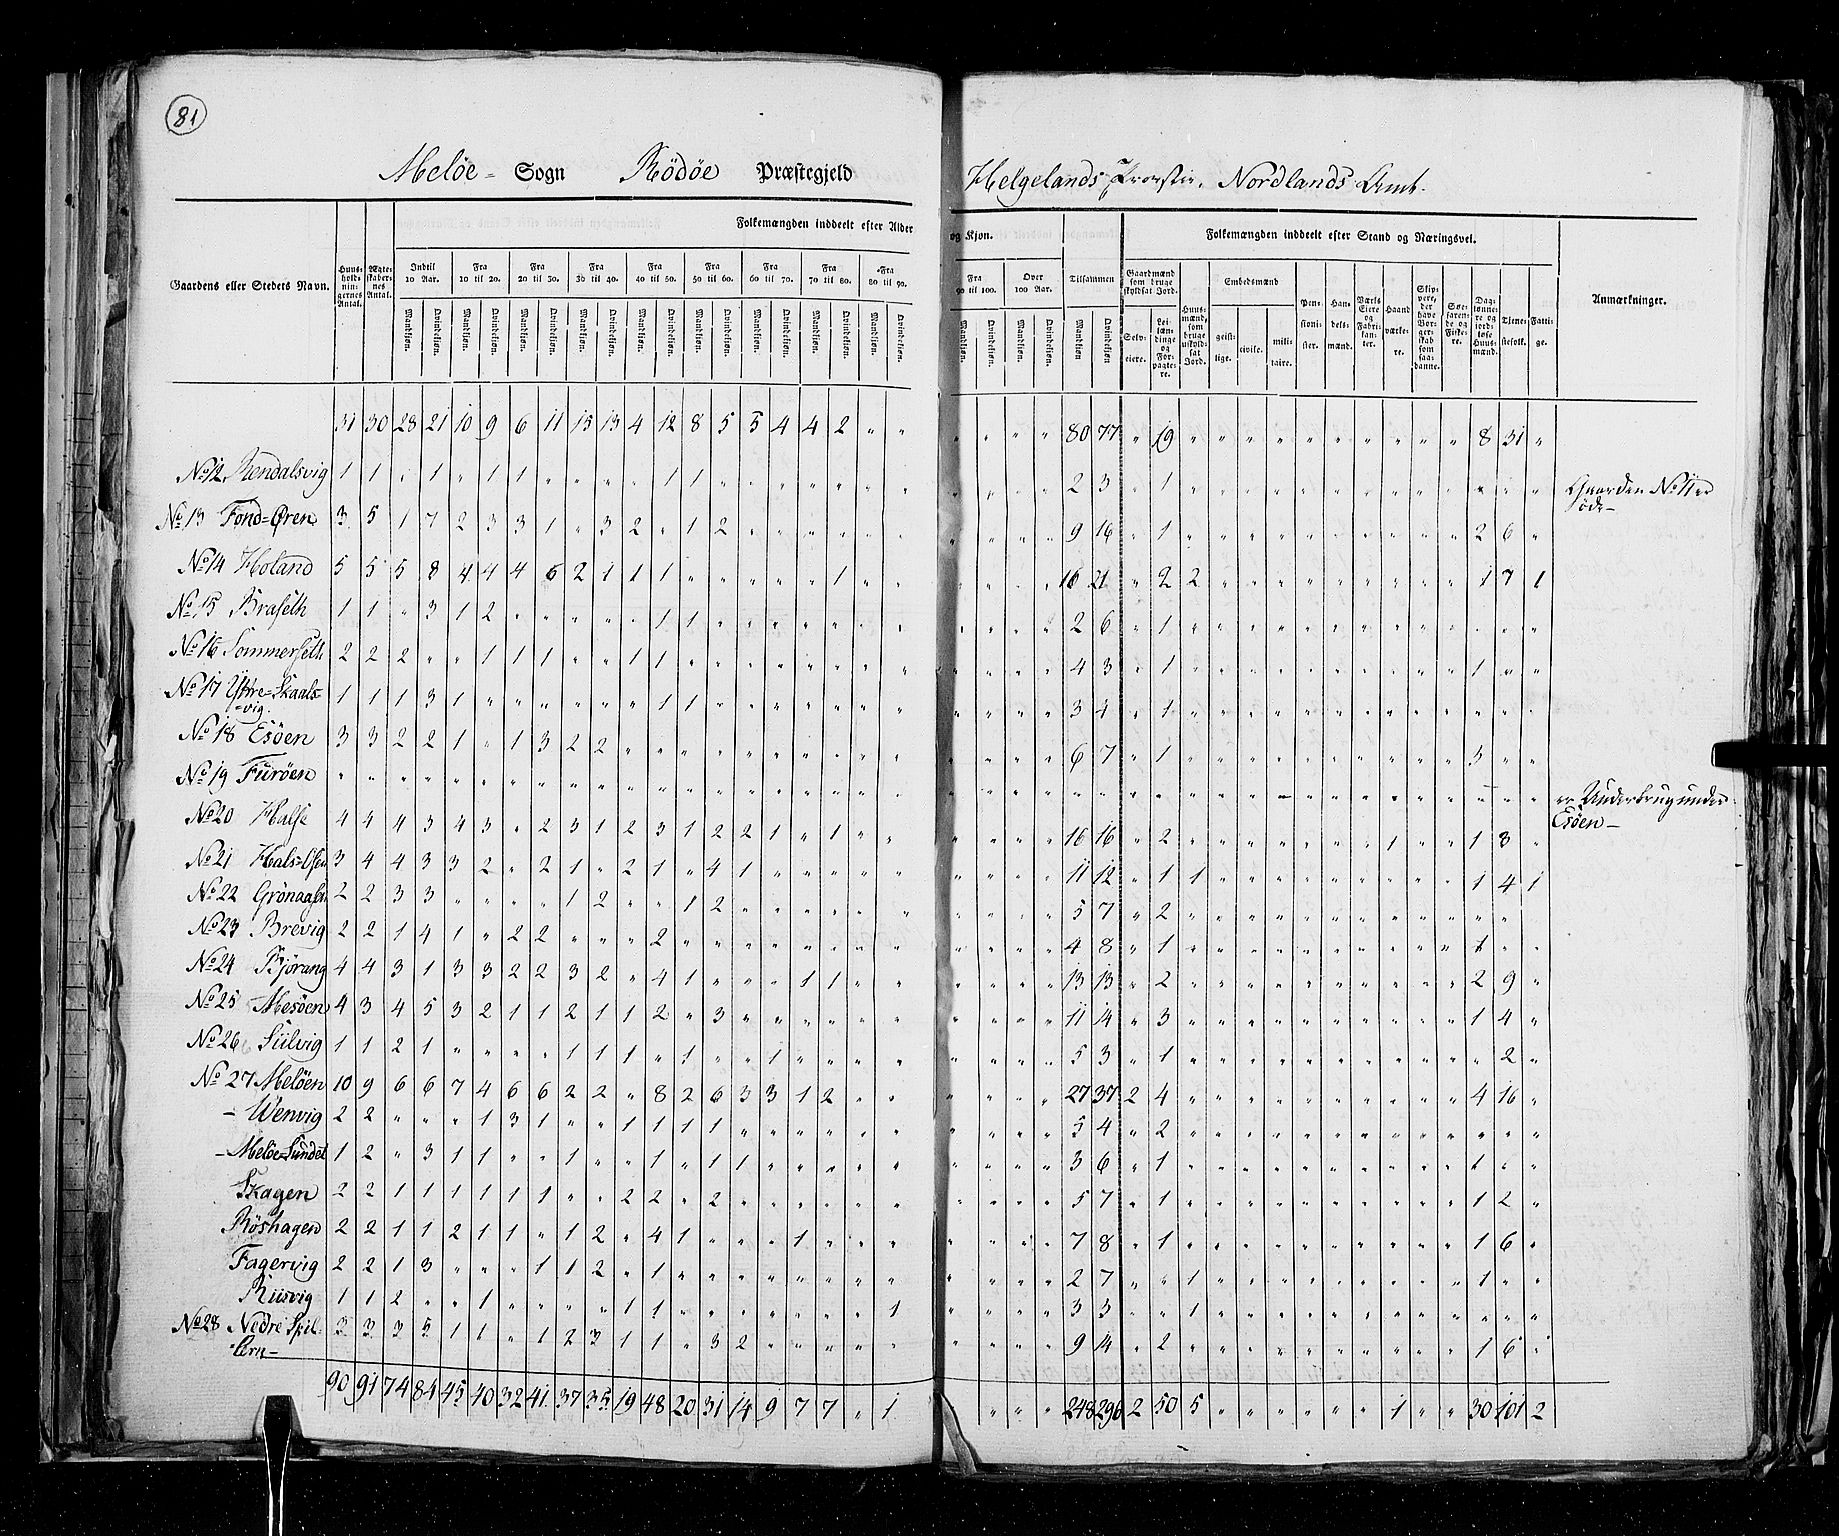 81
Meløe = Sogn Rödöe Præstegjeld Helgelands Provstie, Nordlands Amt.
Gaardens eller Steders Navn. Huusholdningernes Antal. Ægteskabernes Antal. Folkemængden inddeelt efter Alder og Kjøn. Tilsammen Folkemængden inddeelt efter Stand og Næringsvei. Anmærkninger.
Indtil 10 Aar. Fra 10 til 20. Fra 20 til 30. Fra 30 til 40. Fra 40 til 50. Fra 50 til 60. Fra 60 til 70. Fra 70 til 80. Fra 80 til 90. Fra 90 til 100. Over 100 Aar.
Gaardmænd som bruge skyldsat Jord. Huusmænd, som bruge uskyldsat Jord. Embedsmænd Pensionister. Handelsmænd. Værks Eiere og Fabrikanter. Haandværkere. Skippere, der have Borgerskab som saadanne. Søefarende og Fiskere. Daglønnere og jordløse Huusmænd. Tjenestefolk. Fattige.
Mandkjøn. Qvindekjøn. Mandkjøn. Qvindekjøn. Mandkjøn. Qvindekjøn. Mandkjøn. Qvindekjøn. Mandkjøn. Qvindekjøn. Mandkjøn. Qvindekjøn. Mandkjøn. Qvindekjøn. Mandkjøn. Qvindekjøn. Mandkjøn. Qvindekjøn. Mandkjøn. Qvindekjøn. Mandkjøn. Qvindekjøn. Mandkjøn Qvindekjøn Selveiere. Leilændinge og Forpagtere. geistlige. civile. militaire.
31 30 28 21 10 9 6 11 15 13 4 12 8 5 5 4 4 2 " " " " " " 80 77 " 19 " " " " " " " " " " 8 31 "
No 12, Rendalsvig 1 1 " 1 " 1 1 " " " " 1 1 " " " " " " " " " " " 2 3 " 1 " " " " " " " " " " " " " Gaarden No 11 er
øde -
No 13 Fond=Øren 3 5 1 7 2 3 3 1 " 3 2 " 1 2 " " " " " " " " " " 9 16 " 1 " " " " " " " " " " 2 6 "
No 14 Holand 5 5 5 8 4 4 4 6 2 1 1 1 " " " " " 1 " " " " " " 16 21 " 2 2 " " " " " " " " " 1 7 1
No 15 Braseth 1 1 " 3 1 2 " " " " " 1 1 " " " " " " " " " " " 2 6 " 1 " " " " " " " " " " " " "
No 16 Sommerseth 2 2 2 " " 1 1 1 " " 1 1 " " " " " " " " " " " " 4 3 " 1 " " " " " " " " " " 1 " "
No 17 Yttre=Skaals-
=vig. 1 1 1 3 1 " " " " " " 1 1 " " " " " " " " " " " 3 4 " 1 " " " " " " " " " " " " "
No 18 Esöen 3 3 2 2 1 " 1 3 2 2 " " " " " " " " " " " " " " 6 7 " 1 " " " " " " " " " " 3 " "
No 19 Furöen " " " " " " " " " " " " " " " " " " " " " " " " " " " " " " " " " " " " " " " " " er Underbrug under
Esöen -
No 20 Halse 4 4 4 3 4 3 " 2 3 1 2 3 1 2 2 1 " 1 " " " " " " 16 16 " 2 " " " " " " " 1 " " 1 3 "
No 21 Hals=Osen 3 4 4 3 3 2 " 2 1 " 2 1 " 4 1 " " " " " " " " " 11 12 " 1 1 " " " " " " " " " 1 4 1
No 22 Grönaasen 2 2 3 3 " " " " 1 2 " " 1 2 " " " " " " " " " " 5 7 " 2 " " " " " " " " " " " " "
No 23 Brevig 2 2 1 4 1 " 2 2 " " " 2 " " " " " " " " " " " " 4 8 " 1 " " " " " " " " " " 1 " "
No 24 Björang 4 4 3 1 3 3 2 2 3 2 " 4 1 " " " 1 1 " " " " " " 13 13 " 2 " " " " " " " " " " 2 9 "
No 25 Mesöen 4 3 4 5 3 2 1 1 2 1 1 2 " 3 " " " " " " " " " " 11 14 " 3 " " " " " " " " " " 1 4 "
No 26 Siilvig 1 1 2 1 " " " " 1 1 1 " 1 " " 1 " " " " " " " " 5 3 " 1 " " " " " " " " " " " 2 "
No 27 Melöen 10 9 6 6 7 4 6 6 2 2 " 8 2 6 3 3 1 2 " " " " " " 27 37 2 4 " " " " " " " " " " 4 16 "
- Wenvig 2 2 " " " 1 3 1 " " 1 1 1 1 " " " " " " " " " " 5 4 " 2 " " " " " " " " " " " " "
- Melöe=Sundet 1 2 " 3 1 1 " " 1 " " 1 " 1 1 " " " " " " " " " 3 6 " 1 " " " " " " " " " " 1 " "
Skagen 2 2 1 1 1 1 1 1 " " 2 2 " 2 " " " " " " " " " " 5 7 " 1 " " " " " " " " " " 1 2 "
Röshagen 2 2 1 1 2 1 1 " 1 2 " 4 1 " " " 1 " " " " " " " 7 8 " 1 " " " " " " " " " " 1 6 "
Fagervig 2 2 1 3 " " " 1 1 2 " 1 " " " " " " " " " " " " 2 7 " " 1 " " " " " " " " " 1 " "
Riisvig 1 1 2 " " 1 " " " " 1 1 " " " " " " " 1 " " " " 3 3 " " 1 " " " " " " " " " " " "
No 28 Nedre Spil-
=lern - 3 3 3 5 1 1 " 1 2 3 1 1 " 3 2 " " " " " " " " " 9 14 " 2 " " " " " " " " " " 1 6 "
90 91 74 84 45 40 32 41 37 35 19 48 20 31 14 9 7 7 " 1 " " " 248 296 2 50 5 " " " " " " 1 " " 30 101 2